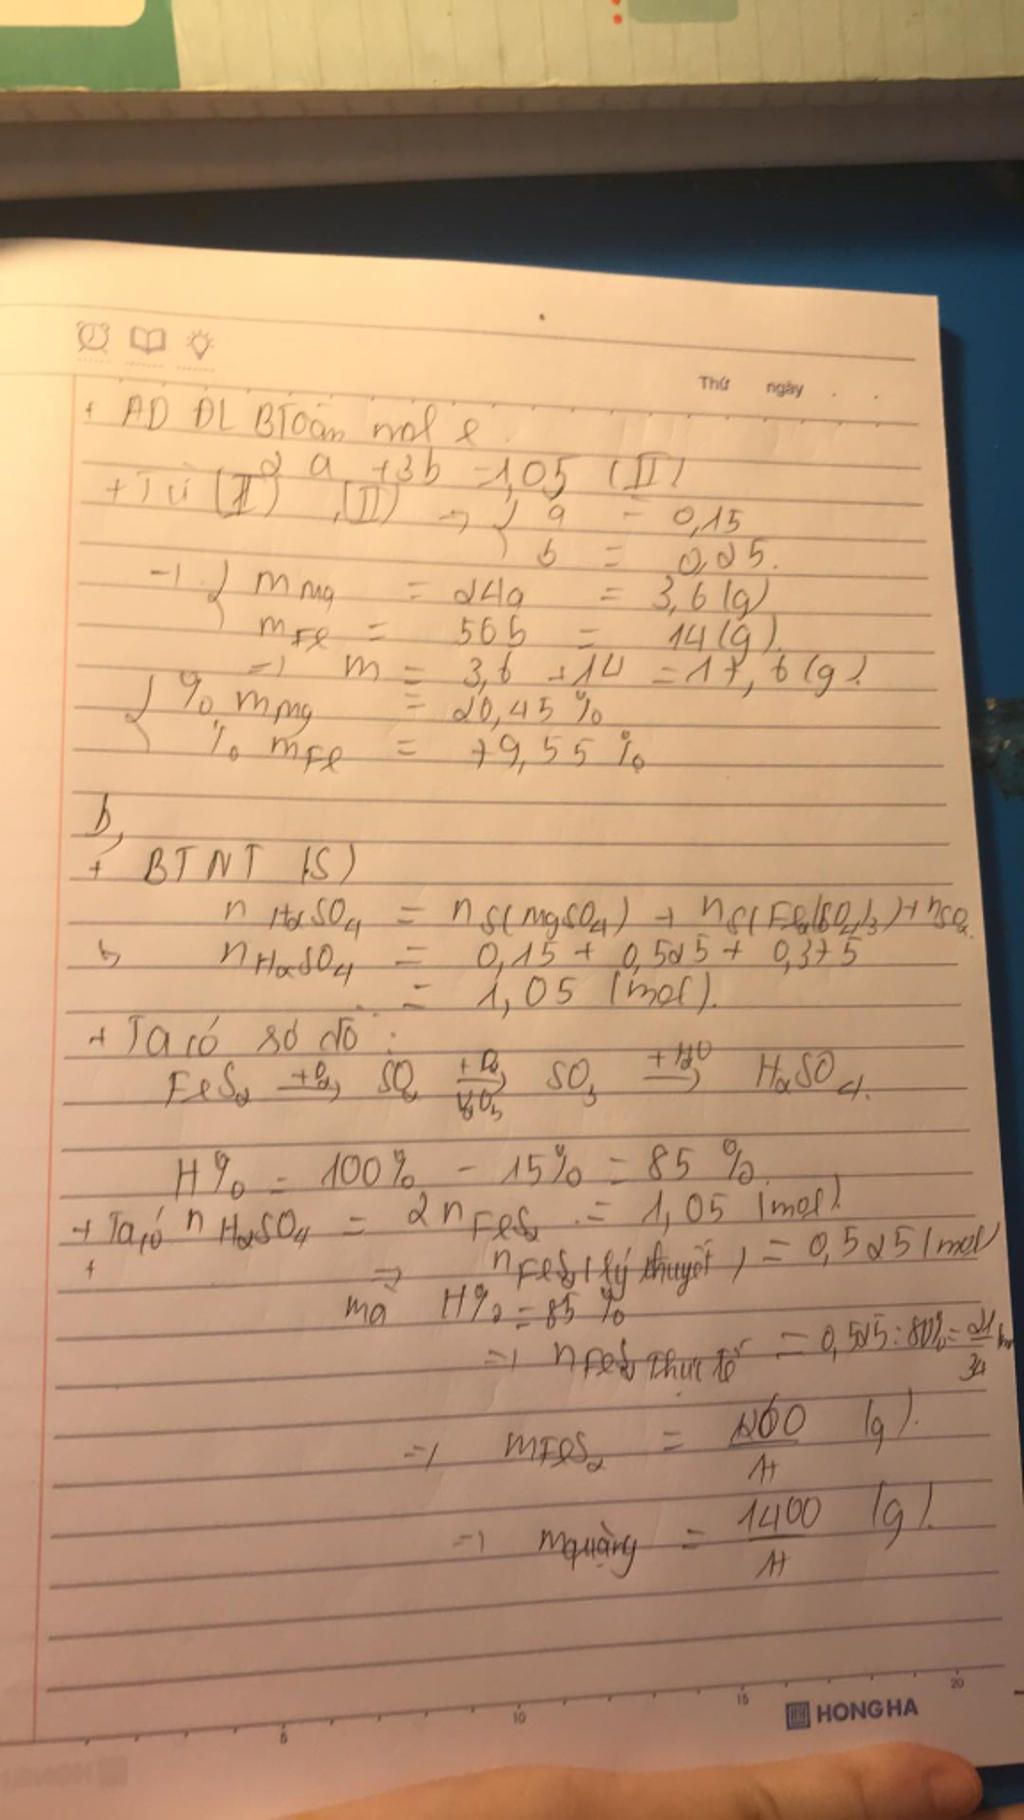 Thứ ngày
+ AD ĐL BToàn mol e.
2a + 3b = 1,05 (II)
+ Từ (I), (II) => { a = 0,15
b = 0,25.
=> { mMg = 24a = 3,6 (g)
mFe = 56b = 14 (g).
=> m = 3,6 + 14 = 17,6 (g).
{ % mMg = 20,45 %
% mFe = 79,55 %
b,
+ BTNT (S)
n H2SO4 = nS(MgSO4) + nS(Fe2(SO4)3) + nSO2.
nH2SO4 = 0,15 + 0,525 + 0,375
= 1,05 (mol).
+ Ta có sơ đồ :
FeS2 +O2→ SO2 +O2→ V2O5 SO3 +H2O→ H2SO4.
H% = 100% - 15% = 85 %.
+ Ta có nH2SO4 = 2 nFeS2 = 1,05 (mol).
+ => nFeS2 (lý thuyết) = 0,525 (mol)
mà H% = 85 %
=> nFeS2 thực tế = 0,525 : 80% = 21/34
=> mFeS2 = 1260/17 (g).
=> mquặng = 1400/17 (g).
5 10 15 20
HONG HA